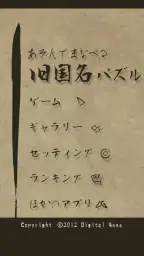 あそんでまなべる
旧国名パズル
ゲーム
ギャラリー
セッティング
ランキング
ほかのアプリ
Copyright ©2012 Digital Gene